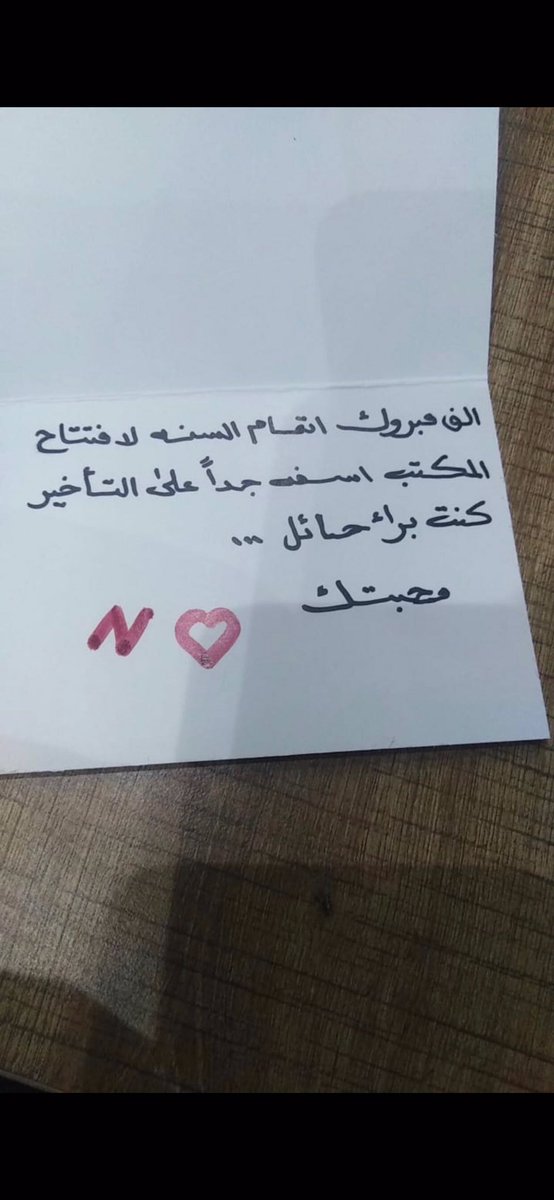 الف مبروك اتمام السنه لافتتاح
المكتب اسفه جداً على التأخير
كنت برا حائل ...
محبتك
N